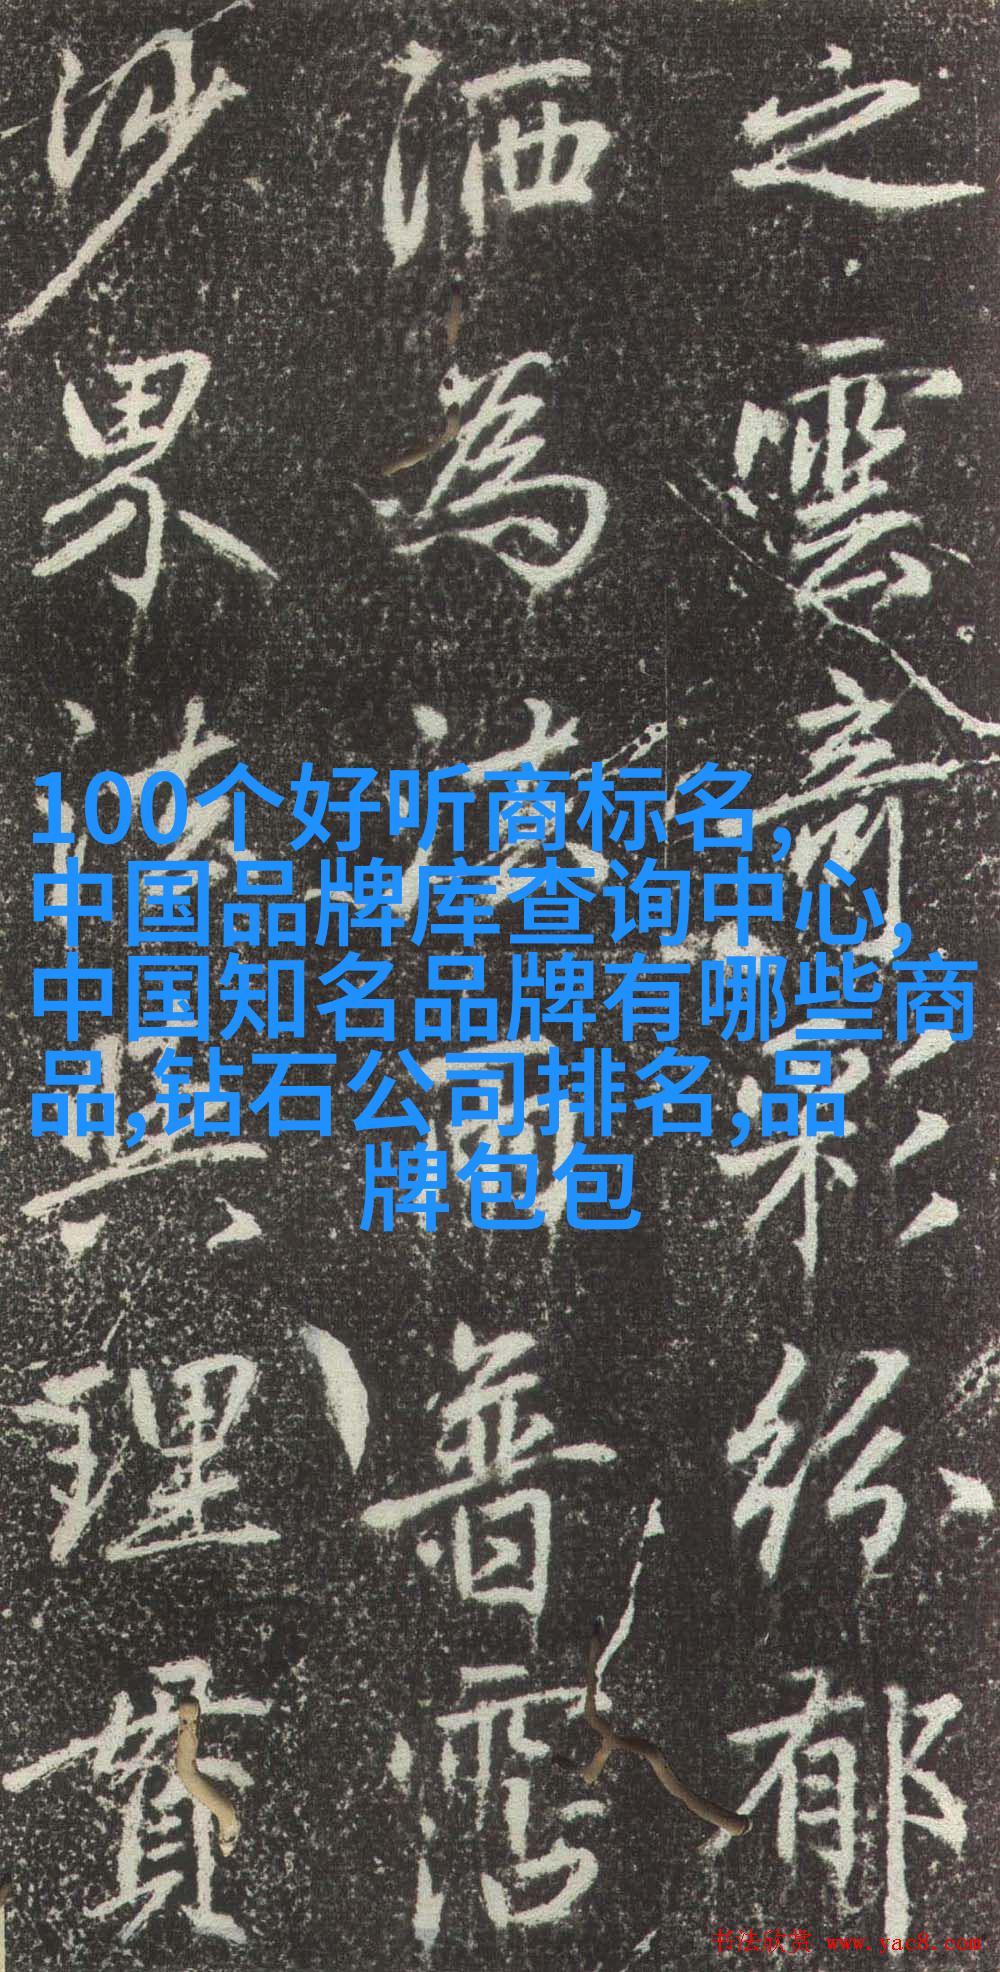 之雲彩紛郁
洒為法雨普霑
沙界法與理貫
100个好听商标名,
中国品牌库查询中心,
中国知名品牌有哪些商
品,钻石公司排名,品
牌包包
书法欣赏 www.yac8.com